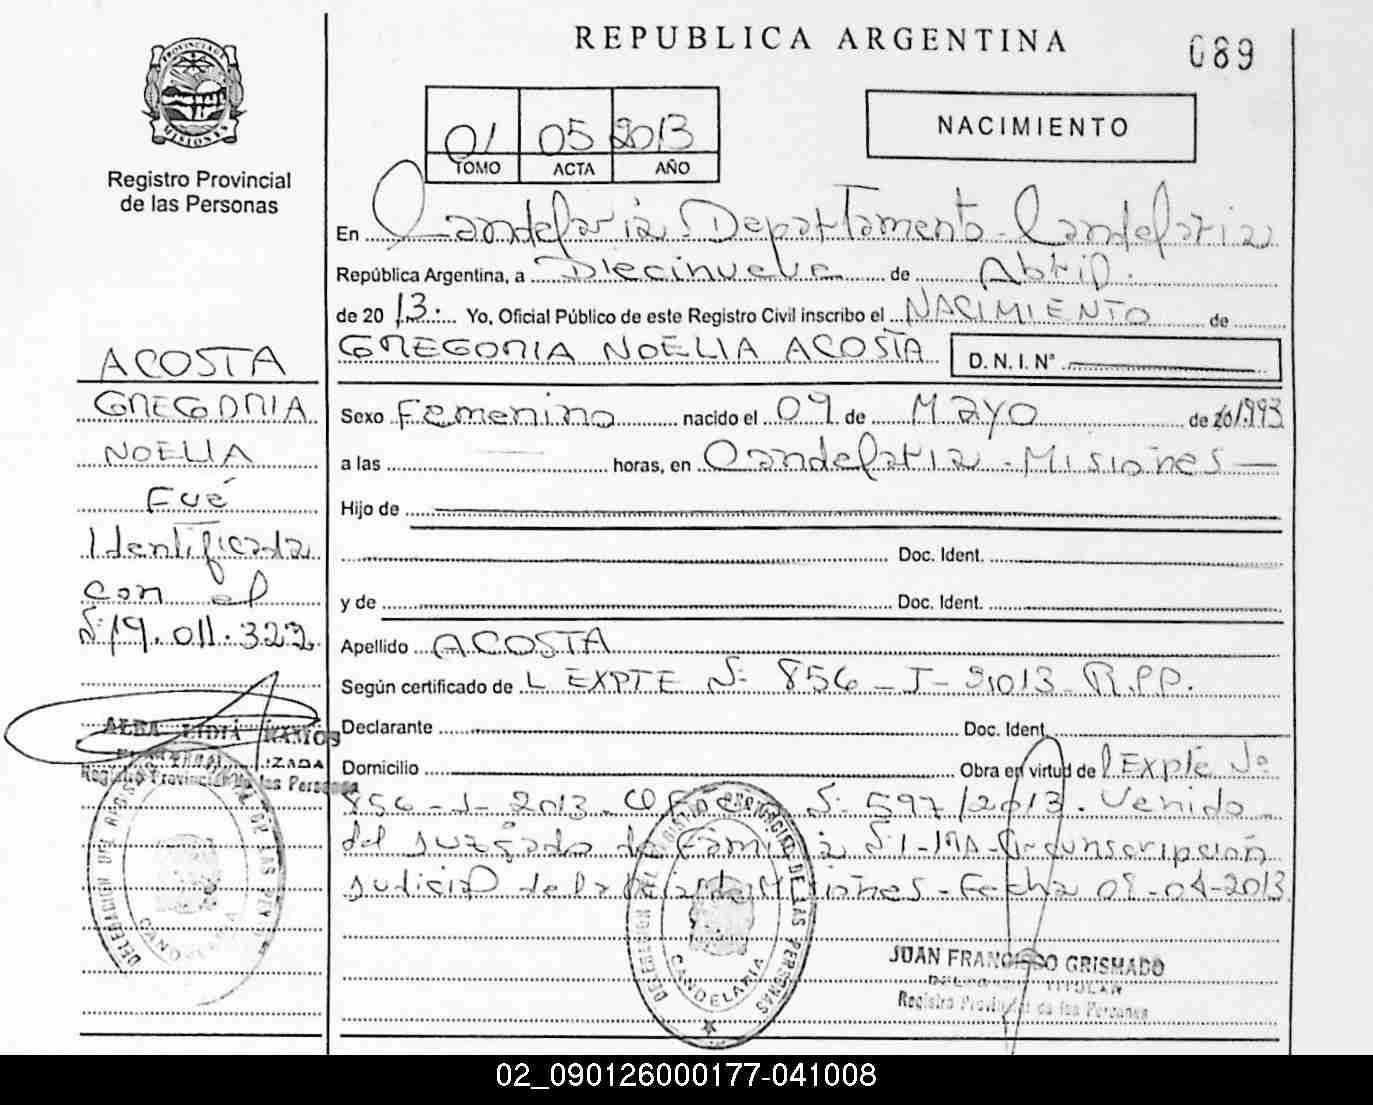 REPUBLICA ARGENTINA
089
PROVINCIA DE MISIONES
Registro Provincial
de las Personas
01 05 2013
TOMO ACTA AÑO
NACIMIENTO
En Candelaria Departamento Candelaria
República Argentina, a Diecinueve de Abril.
de 20 13. Yo, Oficial Público de este Registro Civil inscribo el NACIMIENTO de
GREGORIA NOELIA ACOSTA D. N. I. N°
Sexo Femenino nacido el 09 de MAYO de 1993
a las horas, en Candelaria - Misiones -
Hijo de
Doc. Ident.
y de Doc. Ident.
Apellido ACOSTA
Según certificado de L EXPTE N° 856 - J - 2013 - R.P.P.
Declarante Doc. Ident.
Domicilio Obra en virtud de l Expte N°
856 - J - 2013 - N° 597/2013. Venido
del Juzgado de Familia N° 1 - Circunscripción
Judicial de la Misiones - Fecha 08-04-2013
ACOSTA
GREGORIA
NOELIA
Fué
Identificada
con el
N° 19.011.322
ALBA LIDIA RAMOS
Registro Provincial de las Personas
DELEGACION DEL REGISTRO PROVINCIAL DE LAS PERSONAS
CANDELARIA
DELEGACION DEL REGISTRO PROVINCIAL DE LAS PERSONAS
CANDELARIA
JUAN FRANCISCO GRISMADO
DELEGADO TITULAR
Registro Provincial de las Personas
02_090126000177-041008